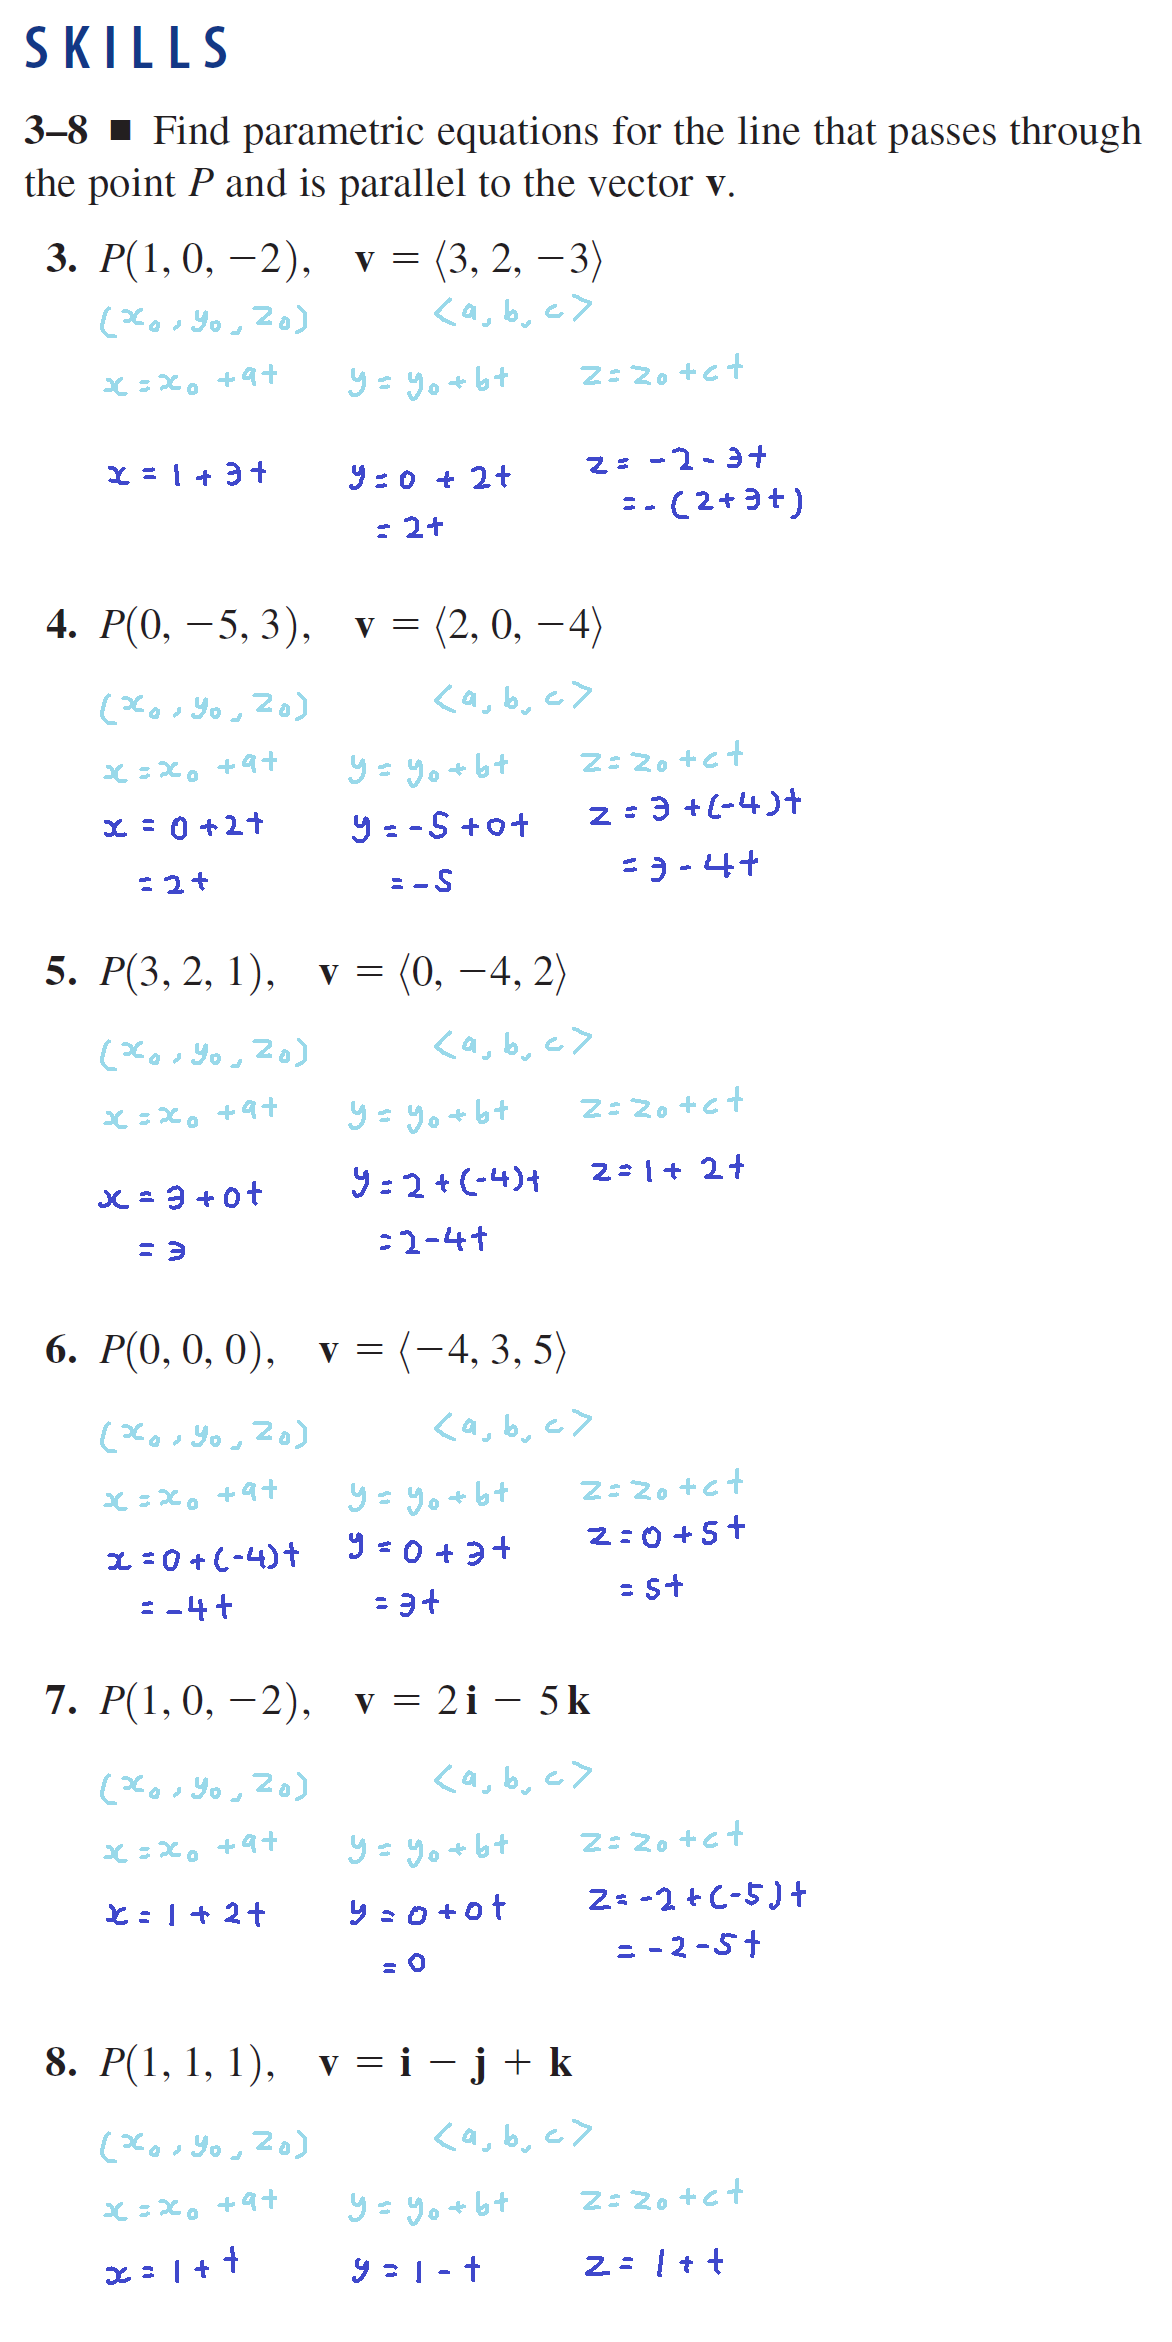 SKILLS
3–8 ■ Find parametric equations for the line that passes through
the point P and is parallel to the vector v.
3. P(1, 0, −2), v = ⟨3, 2, −3⟩
(x₀, y₀, z₀) <a, b, c>
x = x₀ + at y = y₀ + bt z = z₀ + ct
x = 1 + 3t y = 0 + 2t z = -2 - 3t
= 2t = -(2+3t)
4. P(0, −5, 3), v = ⟨2, 0, −4⟩
(x₀, y₀, z₀) <a, b, c>
x = x₀ + at y = y₀ + bt z = z₀ + ct
x = 0 + 2t y = -5 + 0t z = 3 + (-4)t
= 2t = -5 = 3 - 4t
5. P(3, 2, 1), v = ⟨0, −4, 2⟩
(x₀, y₀, z₀) <a, b, c>
x = x₀ + at y = y₀ + bt z = z₀ + ct
x = 3 + 0t y = 2 + (-4)t z = 1 + 2t
= 3 = 2 - 4t
6. P(0, 0, 0), v = ⟨−4, 3, 5⟩
(x₀, y₀, z₀) <a, b, c>
x = x₀ + at y = y₀ + bt z = z₀ + ct
x = 0 + (-4)t y = 0 + 3t z = 0 + 5t
= -4t = 3t = 5t
7. P(1, 0, −2), v = 2i − 5k
(x₀, y₀, z₀) <a, b, c>
x = x₀ + at y = y₀ + bt z = z₀ + ct
x = 1 + 2t y = 0 + 0t z = -2 + (-5)t
= 0 = -2 - 5t
8. P(1, 1, 1), v = i − j + k
(x₀, y₀, z₀) <a, b, c>
x = x₀ + at y = y₀ + bt z = z₀ + ct
x = 1 + t y = 1 - t z = 1 + t